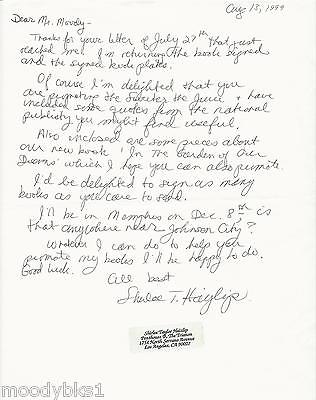 Aug 13, 1999
Dear Mr. Moody-
Thanks for your letter of July 27th that just
reached me! I'm returning the book signed
and the signed bookplates.
Of course I'm delighted that you
are promoting The Sweeter the Juice & have
included some quotes from the national
publicity you might find useful.
Also inclosed are some pieces about
our new book "In the Garden of Our
Dreams" which I hope you can also promote.
I'd be delighted to sign as many
books as you care to send.
I'll be in Memphis on Dec. 8th is
that anywhere near Johnson City?
Whatever I can do to help you
promote my books I'll be happy to do.
Good luck.
All best
Shirlee T. Haizlip
Shirlee Taylor Haizlip
Penthouse B, The Trianon
1750 North Serrano Avenue
Los Angeles, CA 90027
© moodybks1